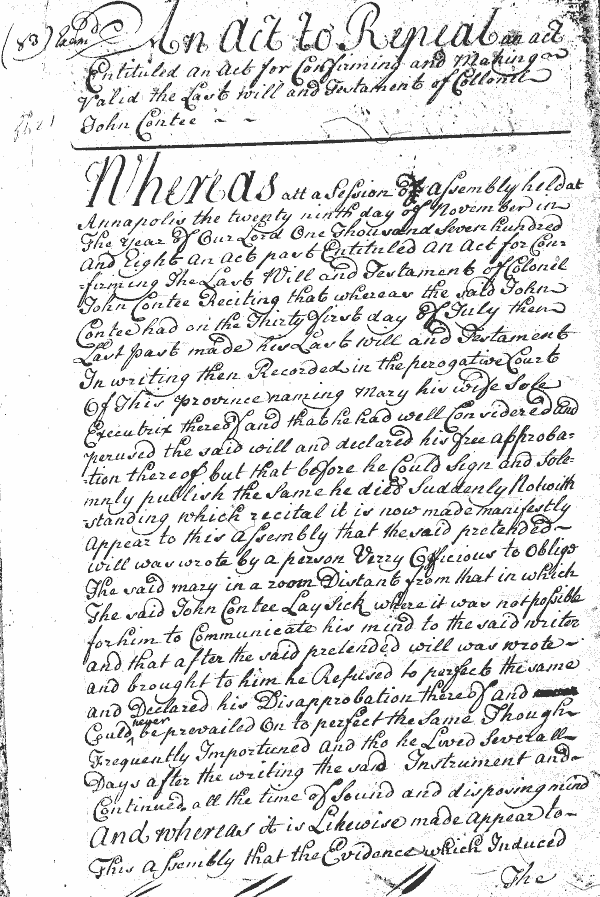 (83) Exam.d An Act to Repeal an act
Entituled an Act for Confirming and Making
Valid the Last will and Testament of Collonel
John Contee - -
Whereas att a Session of assembly held at
Annapolis the twenty ninth day of November in
The Year of Our Lord One Thousand Seven hundred
And Eight An Act past Entituled An Act for Con-
-firming The Last Will and Testament of Colonel
John Contee Reciting that whereas the said John
Contee had on the Thirty first day of July then
Last past made his Last will and Testament
In writing then Recorded in the perogative Court
Of This province naming Mary his wife Sole
Executrix thereof and that he had well Considered and
perused the said will and declared his free approba=
-tion thereof but that before he Could Sign and Sole=
mnly publish the Same he died Suddenly Notwith
-standing which recital it is now made manifestly
Appear to this Assembly that the said pretended
will was wrote by a person Verry Officious to Oblige
The said mary in a room Distant from that in which
The said John Contee Lay Sick where it was not possible
for him to Communicate his mind to the said writer
and that after the said pretended will was wrote
and brought to him he Refused to perfect the same
and Declared his Disapprobation thereof and
Could never be prevailed On to perfect the Same Though
Frequently Importuned and tho he Lived Severall
Days after the writing the said Instrument and
Continued all the time of Sound and disposing mind
And whereas it is Likewise made Appear to
This Assembly that the Evidence which Induced
The